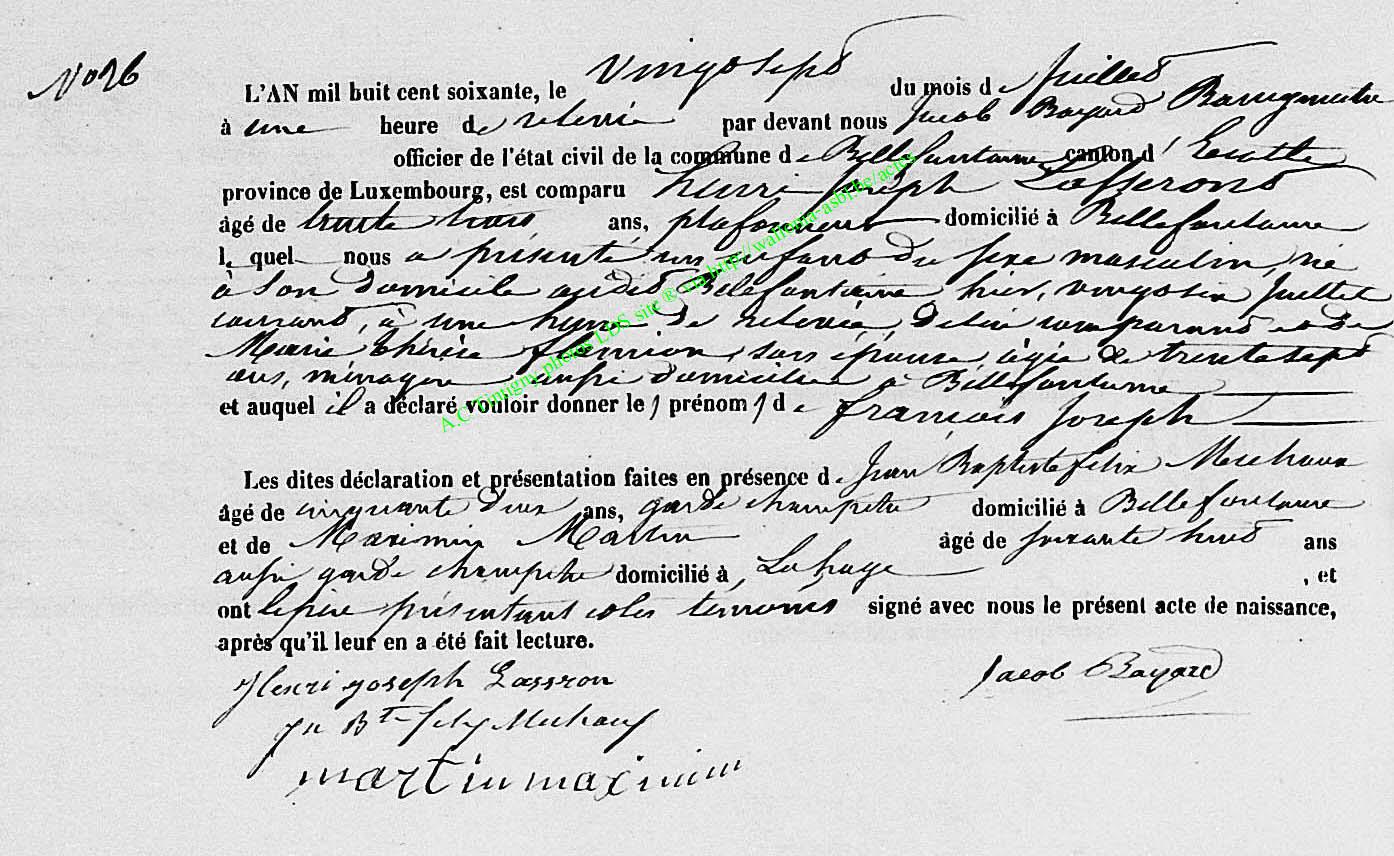 No 26
L'AN mil huit cent soixante, le vingt sept du mois de Juillet
à une heure de relevée par devant nous Jacob Bayard Bourgmestre
officier de l'état civil de la commune de Bellefontaine canton d' Etalle
province de Luxembourg, est comparu henri Joseph Lasseront
âgé de trente huit ans, plafonneur domicilié à Bellefontaine
le quel nous a présenté un enfant du sexe masculin, né
à son domicile audit Bellefontaine hier, vingt six Juillet
courant, à une heure de relevée, de lui comparant et de
Marie thérèse son épouse, âgée de trente sept
ans, ménagère aussi domiciliée à Bellefontaine
et auquel il a déclaré vouloir donner le prénom de françois Joseph
Les dites déclaration et présentation faites en présence de Jean Baptiste felix Mechaux
âgé de cinquante deux ans, garde champêtre domicilié à Bellefontaine
et de Maximin Martin âgé de soixante huit ans
aussi garde champêtre domicilié à Lahage , et
ont le père présentant et les temoins signé avec nous le présent acte de naissance,
après qu'il leur en a été fait lecture.
Henri joseph Lassron
Jacob Bayard
Jn Bte felix Mechaux
martin maximin
A.C. Tintigny photos LDS site ® via http://wallonia-asbl.be/actes